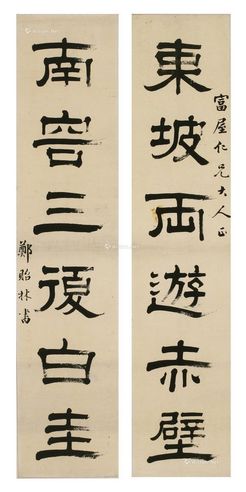 富屋仁兄大人正
東坡両遊赤壁
南容三復白圭
鄭貽林書